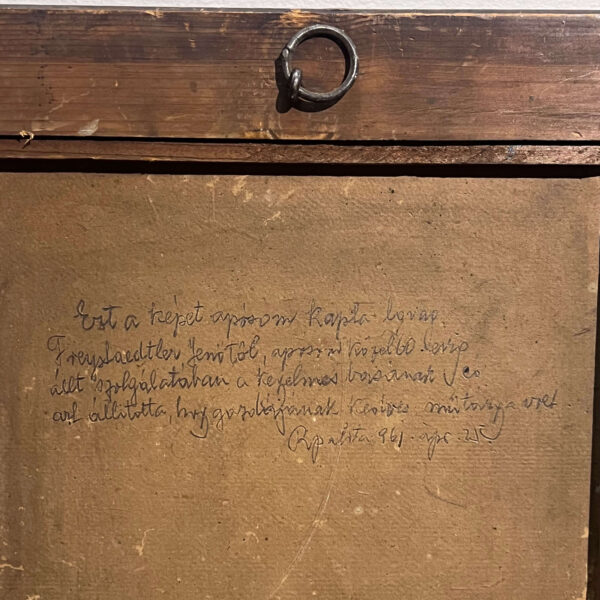 Ezt a képet apósom kapta lovag
Freystaedtler Jenőtől, apósom közel 60 évig
állt szolgálatában a kegyelmes bácsinak és
azt állította, hogy gazdájának kedves műtárgya volt.
961. ápr.